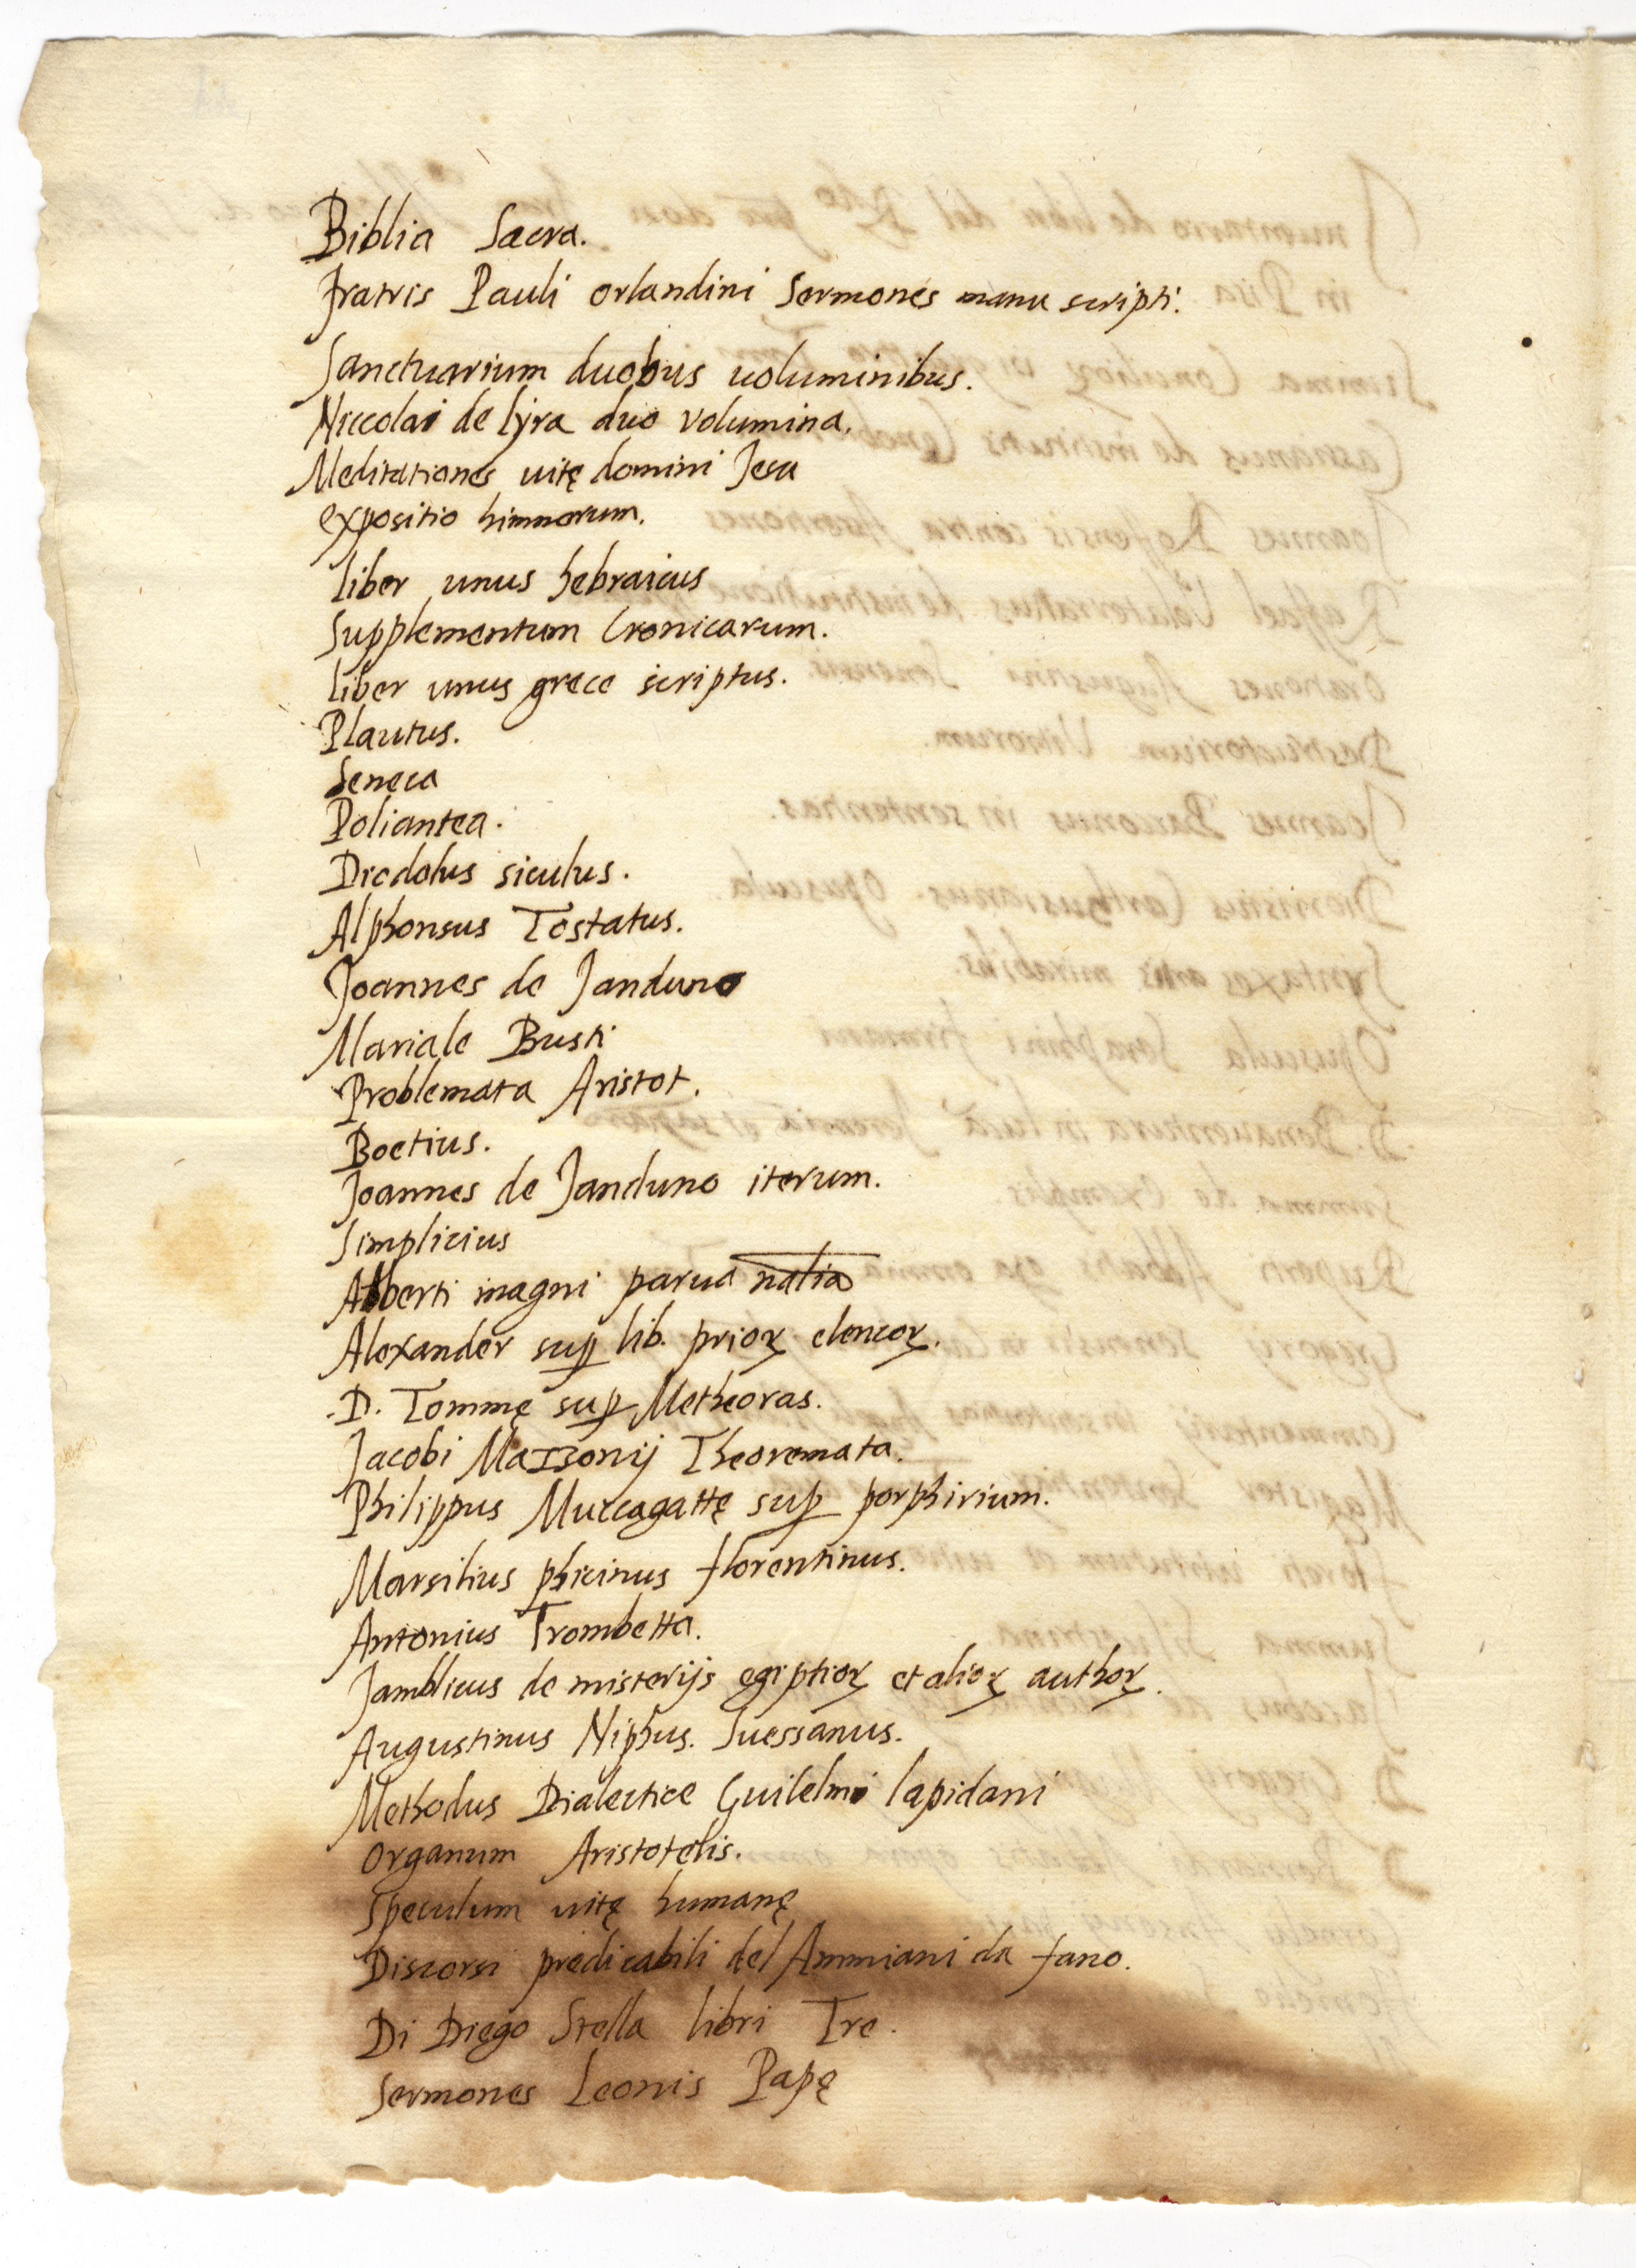 Biblia Sacra.
Fratris Pauli orlandini Sermones manu scripti.
Sanctuarium duobus uoluminibus.
Niccolai de lyra duo volumina.
Meditationes uitę domini Jesu
expositio himnorum.
liber unus hebraicus
Supplementum Cronicarum.
liber unus grece scriptus.
Plautus.
Seneca
Poliantea.
Diodolus siculus.
Alphonsus Tostatus.
Joannes de Janduno
Mariale Busti
Problemata Aristot.
Boetius.
Joannes de Janduno iterum.
Simplicius
Alberti magni parua nalia
Alexander suꝑ lib. prioꝝ elencoꝝ.
D. Tommę suꝑ Metheoras.
Jacobi Mazzonij Theoremata.
Philippus Muccagattę suꝑ porphirium.
Marsilius phicinus florentinus.
Antonius Trombetta.
Jamblicus de misterijs egiptioꝝ et alioꝝ authoꝝ.
Augustinus Niphus. Suessanus.
Methodus Dialectice Guilelmi lapidani
Organum Aristotelis.
Speculum uitę humanę
Discorsi predicabili del Ammiani da fano.
Di Diego Stella libri Tre.
Sermones Leonis Papę